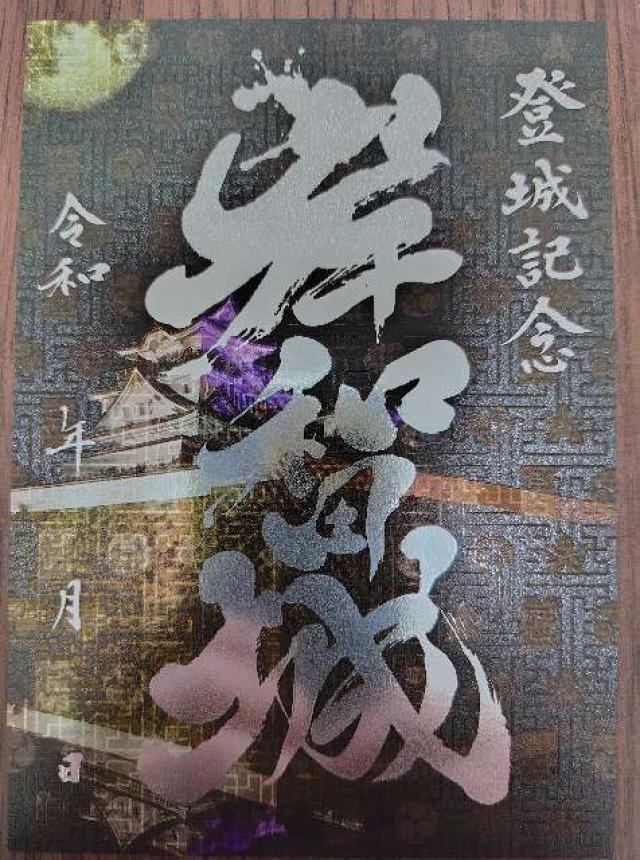 登城記念
岸和田城
令和 年 月 日